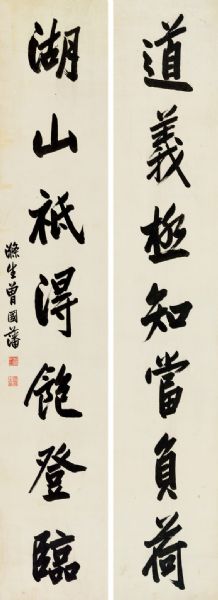 道義極知當負荷
湖山祇得飽登臨
滌生曾國藩